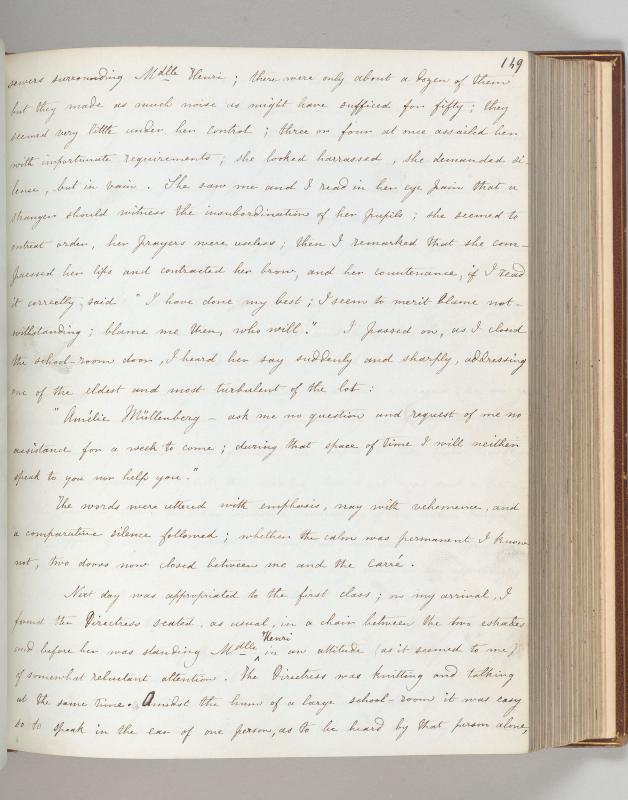 149
sewers surrounding Mdlle Henri ; there were only about a dozen of them
but they made as much noise as might have sufficed for fifty ; they
seemed very little under her control ; three or four at once assailed her
with importunate requirements ; she looked harrassed , she demanded si-
lence , but in vain . She saw me and I read in her eye pain that a
stranger should witness the insubordination of her pupils ; she seemed to
entreat order , her prayers were useless ; then I remarked that she com-
pressed her lips and contracted her brow , and her countenance , if I read
it correctly , said " I have done my best ; I seem to merit blame not-
withstanding ; blame me then , who will . " I passed on , as I closed
the school-room door , I heard her say suddenly and sharply , addressing
one of the eldest and most turbulent of the lot :
" Amélie Müllenberg - ask me no question and request of me no
assistance for a week to come ; during that space of time I will neither
speak to you nor help you . "
The words were uttered with emphasis , nay with vehemence , and
a comparative silence followed ; whether the calm was permanent I know
not , two doors now closed between me and the Carré .
Next day was appropriated to the first class ; on my arrival , I
found the Directress seated , as usual , in a chair between the two estrades
and before her was standing Mdlle Henri in an attitude ( as it seemed to me )
of somewhat reluctant attention . The Directress was knitting and talking
at the same time . Amidst the hum of a large school-room it was easy
so to speak in the ear of one person , as to be heard by that person alone ,